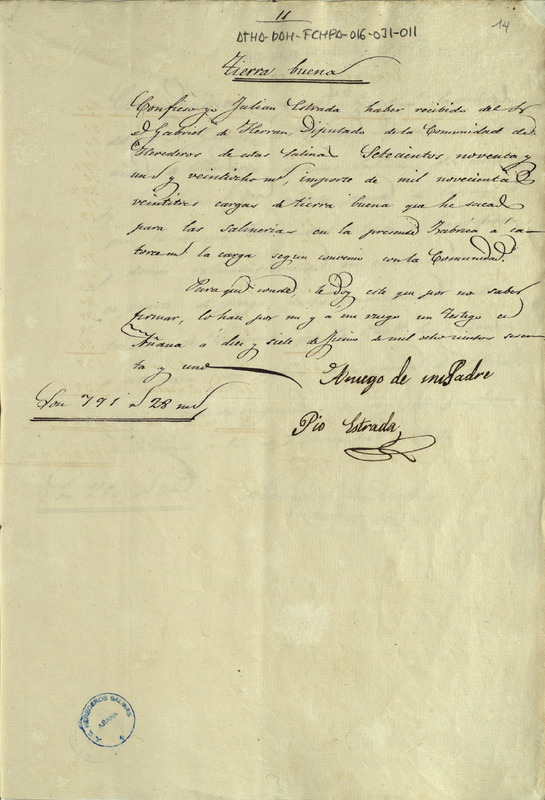 11
14
ATHA-DAH-FCHPA-016-031-011
Tierra buena
Confieso yo Julian Estrada haber recibido del Sr
Dn Gabriel de Herran, Diputado de la Comunidad de
Herederos de estas Salinas Setecientos noventa y
un rs y veintiocho ms, importe de mil novecientas
veintitres cargas de tierra buena que he sacado
para las salinerias en la presente Fabrica á ca-
torce ms la carga segun convenio con la Comunidad.
Para que conste, le doy este que por no saber
firmar, lo hace por mi y á mi ruego un testigo en
Añana á diez y siete de Junio de mil ocho cientos sesen-
ta y uno
Aruego de mi Padre
Son 791 rs 28 ms
Pio Estrada
HEREDEROS SALINAS
AÑANA